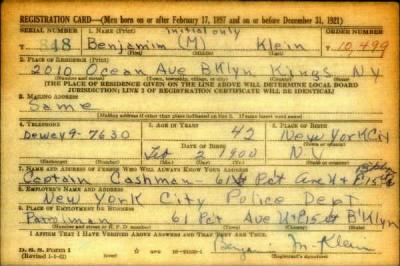 REGISTRATION CARD—(Men born on or after February 17, 1897 and on or before December 31, 1921)
SERIAL NUMBER 1. NAME (Print) initial only ORDER NUMBER
T 848 Benjamin (M) Klein 10,499
(First) (Middle) (Last)
2. PLACE OF RESIDENCE (Print)
2010 Ocean Ave BKlyn Kings NY
(Number and street) (Town, township, village, or city) (County) (State)
[THE PLACE OF RESIDENCE GIVEN ON THE LINE ABOVE WILL DETERMINE LOCAL BOARD
JURISDICTION; LINE 2 OF REGISTRATION CERTIFICATE WILL BE IDENTICAL]
3. MAILING ADDRESS
Same
[Mailing address if other than place indicated on line 2. If same insert word same]
4. TELEPHONE 5. AGE IN YEARS 6. PLACE OF BIRTH
Dewey 9-7630 42 New York City
DATE OF BIRTH
Feb 2 1900 N.Y.
(Exchange) (Number) (Mo.) (Day) (Yr.) (State or country)
7. NAME AND ADDRESS OF PERSON WHO WILL ALWAYS KNOW YOUR ADDRESS
Captain Cashman 61st Pct Ave U + E 15 St
8. EMPLOYER'S NAME AND ADDRESS
New York City Police Dept
9. PLACE OF EMPLOYMENT OR BUSINESS
Patrolman 61 Pct Ave U + E 15 St BKlyn
(Number and street or R. F. D. number) (Town) (County) (State)
I AFFIRM THAT I HAVE VERIFIED ABOVE ANSWERS AND THAT THEY ARE TRUE.
D. S. S. Form 1
(Revised 1-1-42) (over)
Benjamin M. Klein